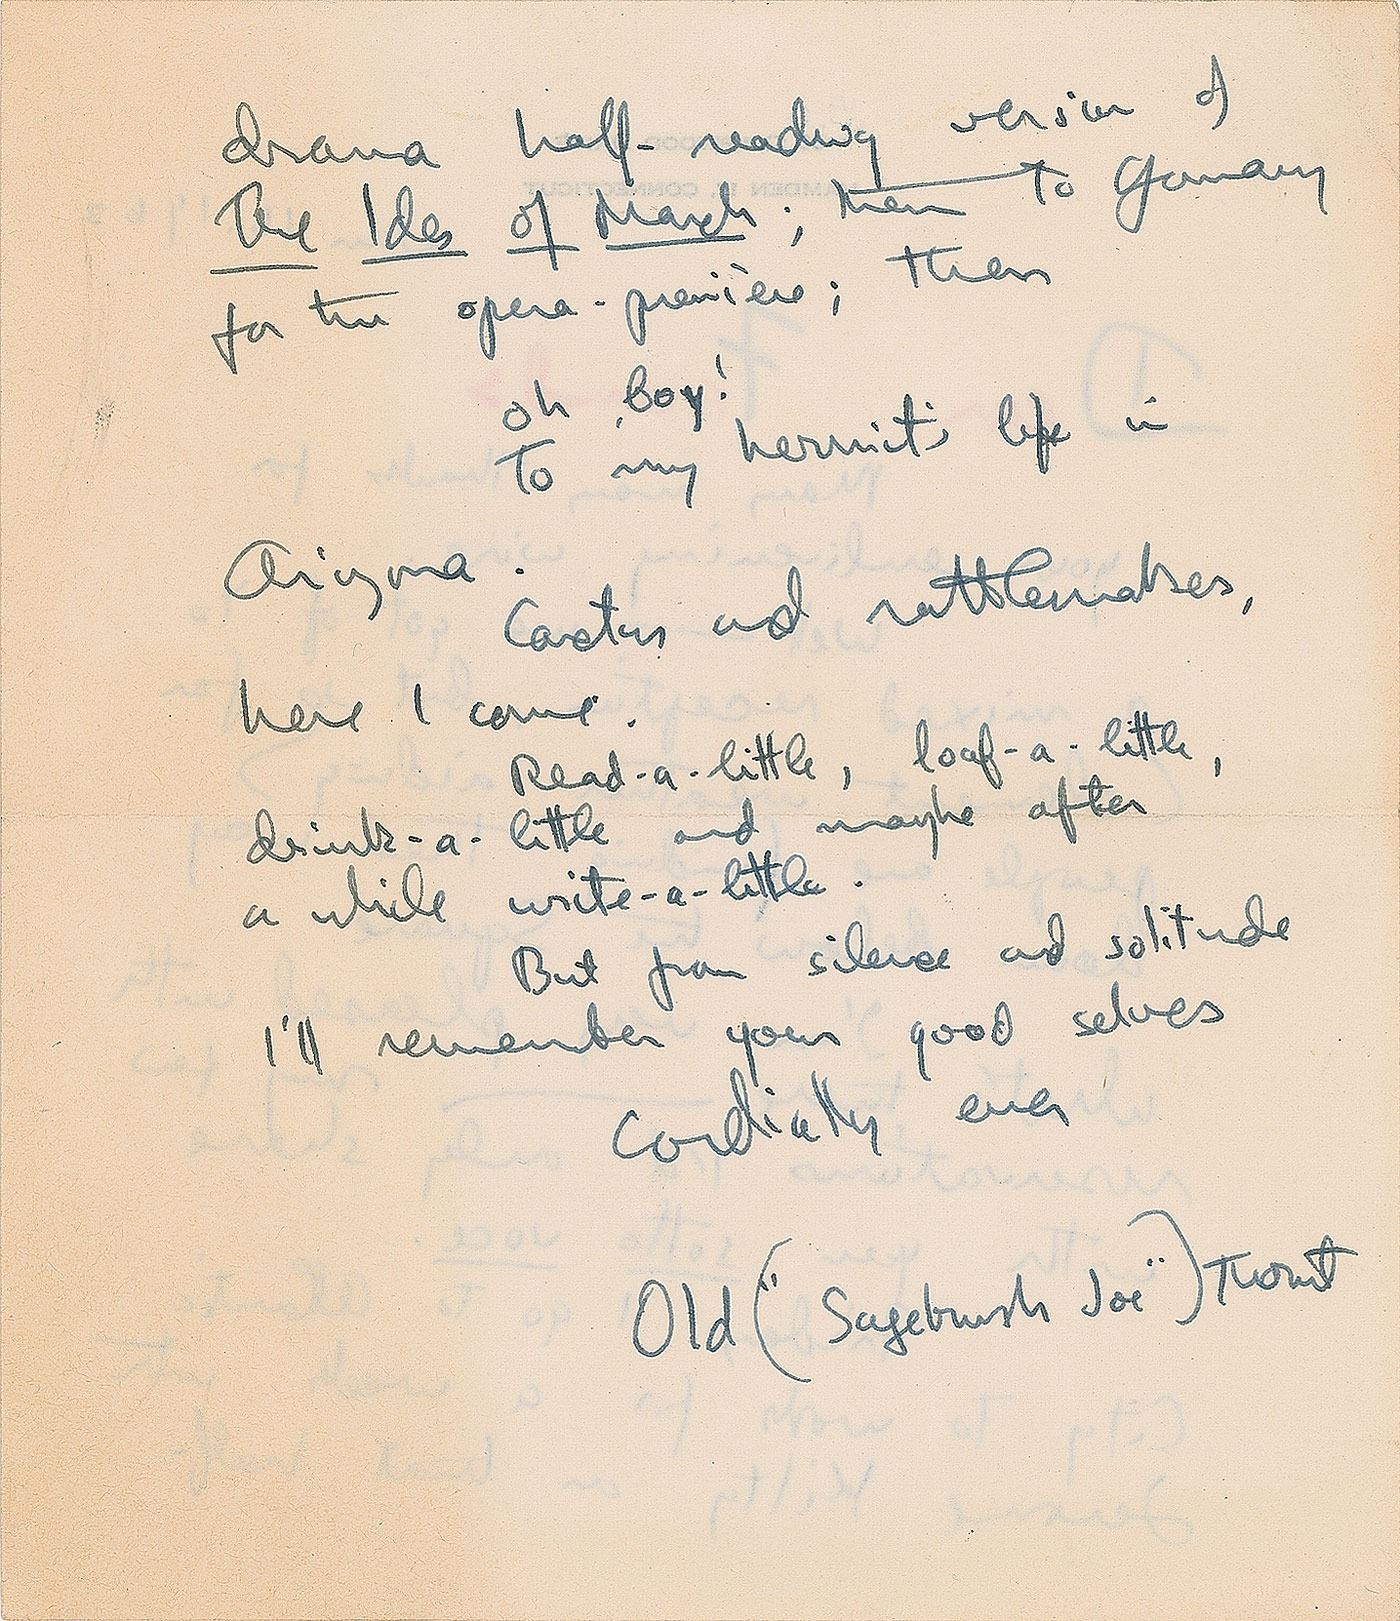 drama half-reading version of
The Ides of March; then to Germany
for the opera-première; then
oh, boy!
to my hermit's life in
Arizona.
Cactus and rattlesnakes,
here I come.
Read-a-little, loaf-a-little,
drink-a-little and maybe after
a while write-a-little.
But from silence and solitude
I'll remember your good selves
Cordially ever
Old ("Sagebrush Joe") Thornt